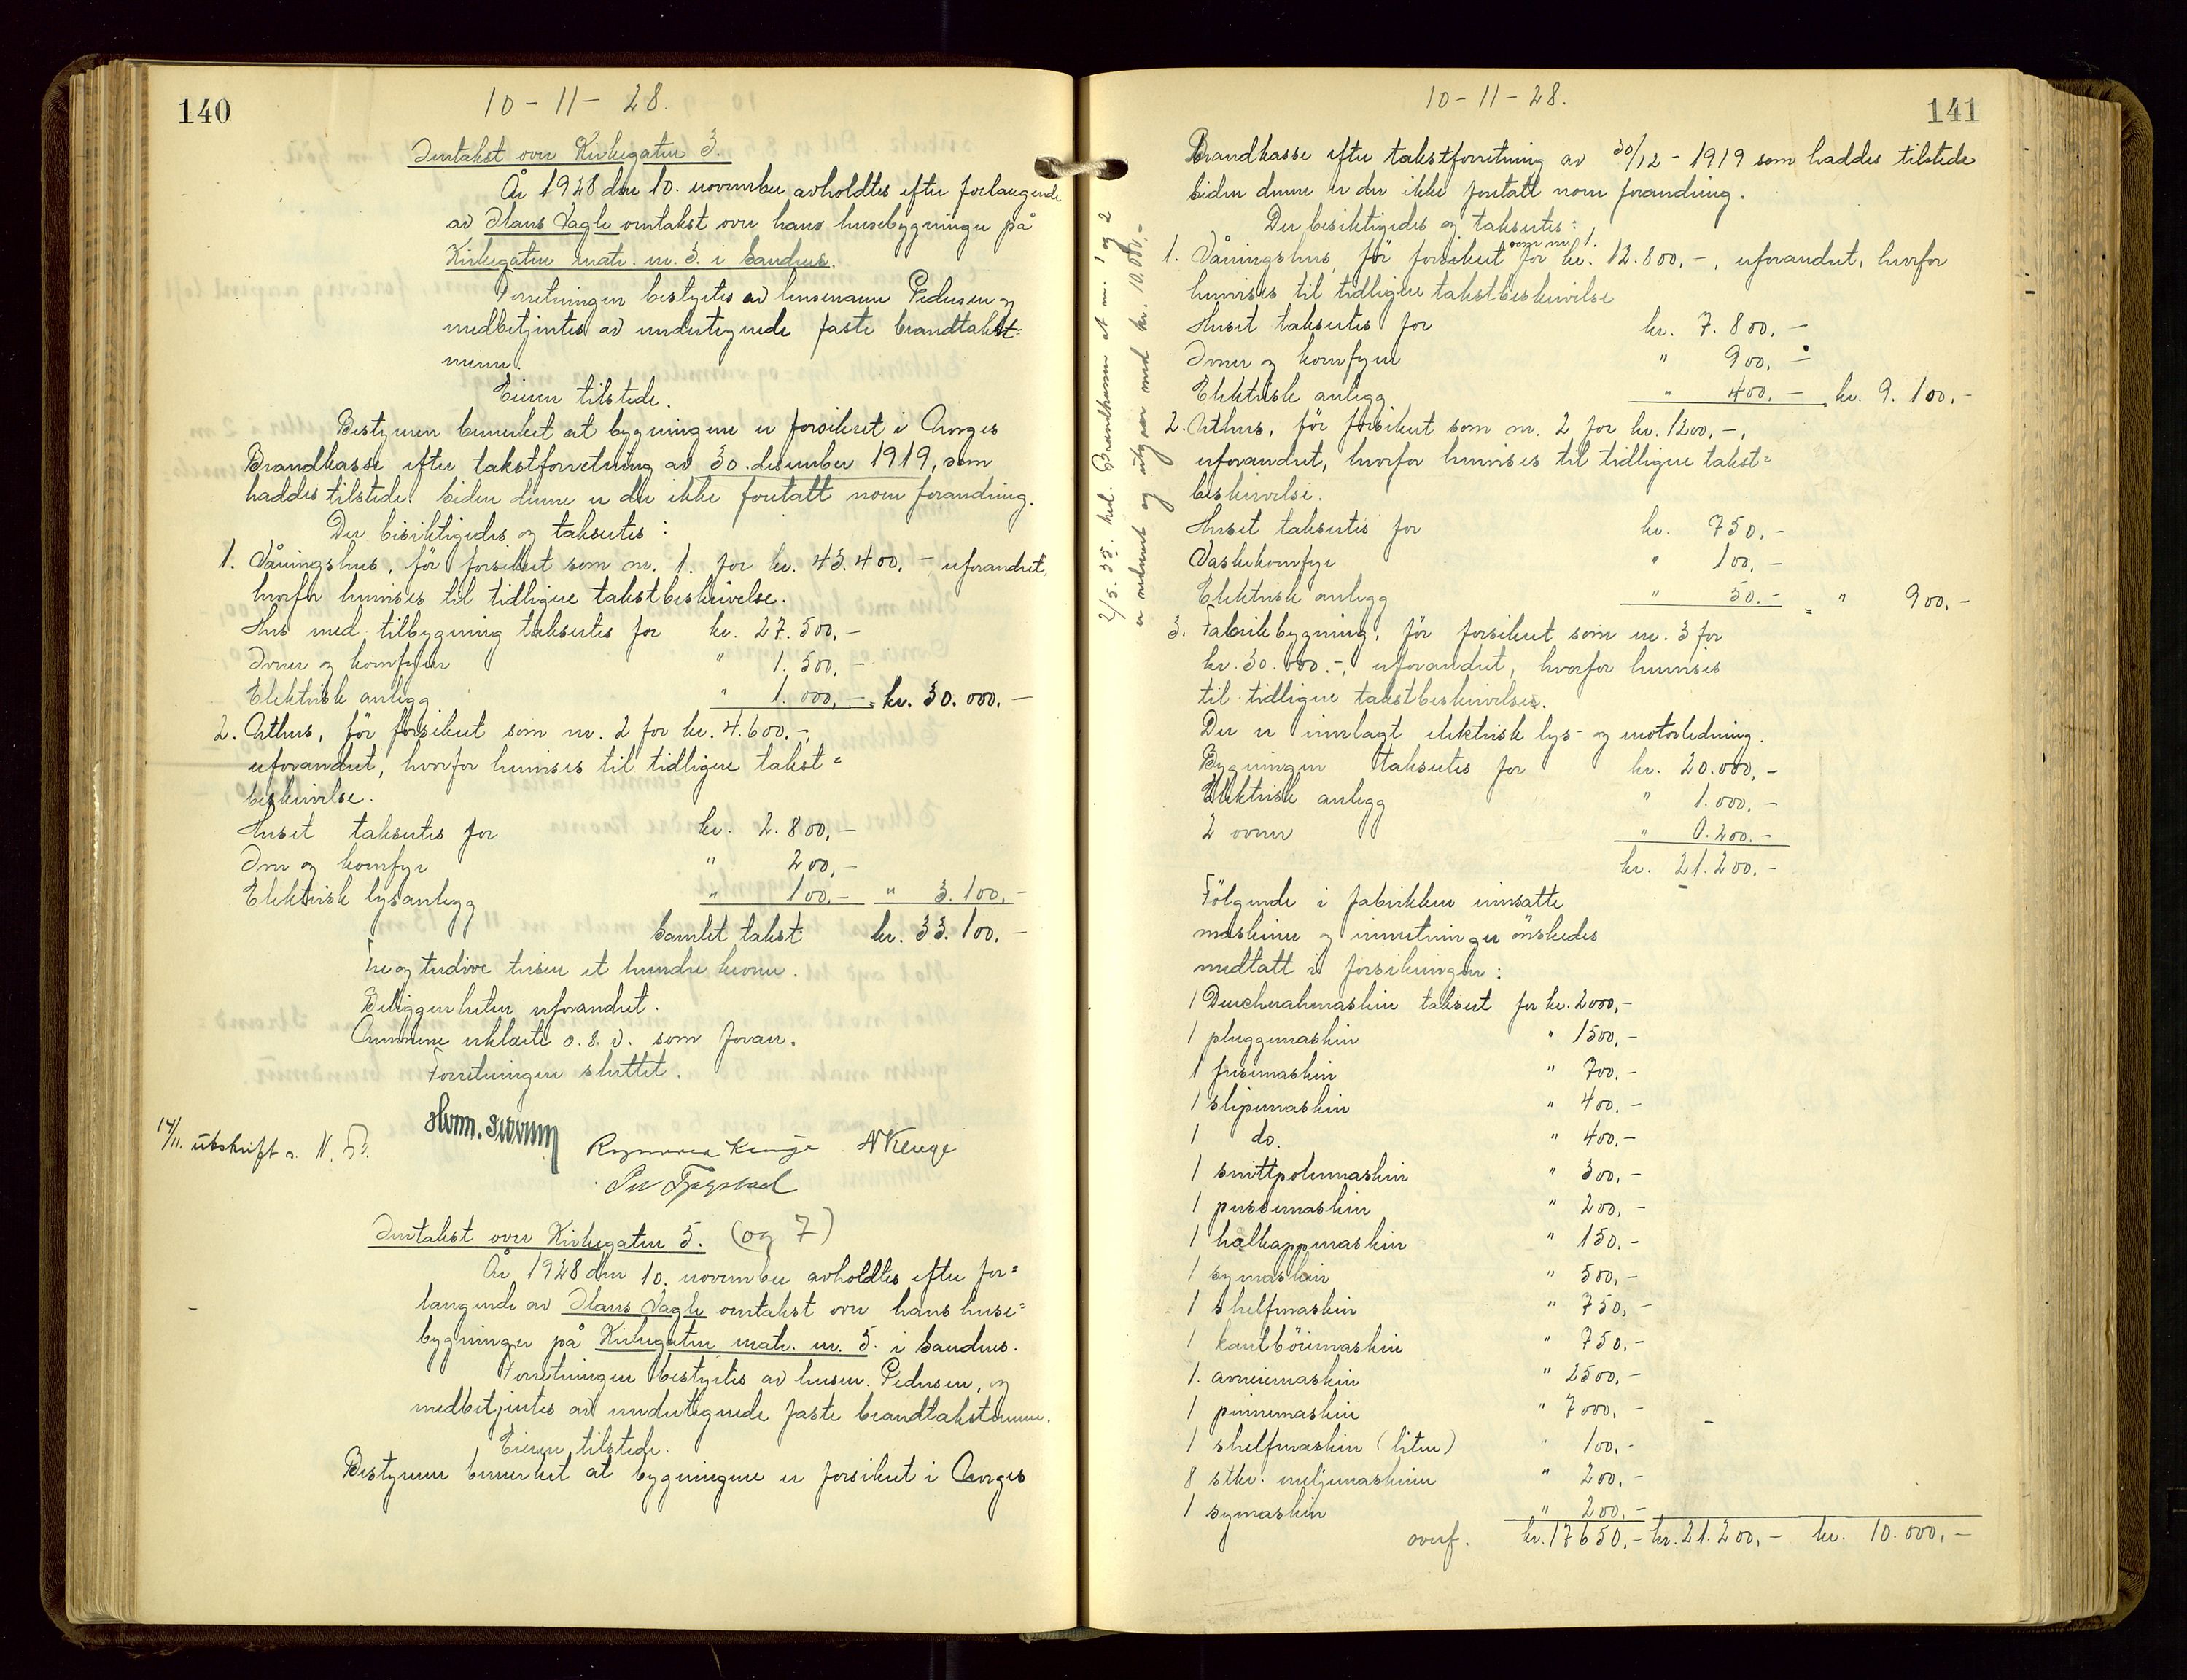 140
10-11-28.
Omtakst over Kirkegaten 3.
År 1928 den 10. november avholdtes efter forlangende
av Hans Vagle omtakst over hans husebygninger på
Kirkegaten matr. nr. 3 i Sandnes.
Forretningen bestyrtes av lensmann Pedersen og
medbetjentes av undertegnede faste brandtakst=
menn.
Eieren tilstede.
Bestyreren bemerket at bygningene er forsikret i Norges
Brandkasse efter takstforretning av 30. desember 1919, som
haddes tilstede. Siden denne er der ikke foretatt noen forandring.
Der besiktigedes og taksertes:
1. Våningshus, før forsikret som nr. 1. for kr. 43.400.- uforandret,
hvorfor henvises til tidligere takstbeskrivelse.
Hus med tilbygning taksertes for kr. 27.500,-
Ovner og komfyrer " 1.500,-
Elektrisk anlegg " 1.000,- = kr. 30.000.-
2. Uthus, før forsikret som nr. 2 for kr. 4.600.-,
uforandret, hvorfor henvises til tidligere takst=
beskrivelse.
Huset taksertes for kr. 2.800,-
Ovn og komfyr " 200,-
Elektrisk lysanlegg " 100,- " 3.100,-
Samlet takst: kr. 33.100.-
Tre og tredive tusen et hundre kroner.
Beliggenheten uforandret.
Mennene erklærte o.s.v. som foran.
Forretningen sluttet.
14/11. utskrift s. N. B.
Rasmus Kluge N Kluge
Omtakst over Kirkegaten 5. (og 7)
År 1928 den 10. november avholdtes efter for=
langende av Hans Vagle omtakst over hans huse=
bygninger på Kirkegaten matr. nr. 5. i Sandnes.
Forretningen bestyrtes av lensm. Pedersen, og
medbetjentes av undertegnede faste brandtakstmenn.
Eieren tilstede.
Bestyreren bemerket at bygningene er forsikret i Norges
141
10-11-28.
Brandkasse efter takstforretning av 30/12-1919 som haddes tilstede
Siden denne er der ikke foretatt noen forandring.
Der besiktigedes og taksertes:
1. Våningshus, før forsikret som nr. 1. for kr. 12.800,-, uforandret, hvorfor
henvises til tidligere takstbeskrivelse
Huset taksertes for kr. 7.800,-
Ovner og komfyrer " 900,-
Elektrisk anlegg " 400.- kr. 9.100,-
2. Uthus, før forsikret som nr. 2 for kr. 1200.-,
uforandret, hvorfor henvises til tidligere takst=
beskrivelse.
Huset taksertes for kr. 750.-
Vaskekomfyr " 100,-
Elektrisk anlegg " 50.- = " 900,-
3. Fabrikbygning, før forsikret som nr. 3 for
kr. 30.000.-, uforandret, hvorfor henvises
til tidligere takstbeskrivelser.
Der er innlagt elektrisk lys- og motorledning.
Bygningen taksertes for kr. 20.000,-
Elektrisk anlegg " 1.000,-
2 ovner " 0.200.-
kr. 21.200.-
Følgende i fabrikken innsatte
maskiner og innretninger ønskedes
medtatt i forsikringen:
1 Durchnahmaskin taksert for kr. 2000,-
1 pluggemaskin " 1500,-
1 fresemaskin " 700.-
1 slipemaskin " 400.-
1 do. " 400.-
1 snittpolermaskin " 300,-
1 pussemaskin " 200,-
1 hælkappmaskin " 150.-
1 symaskin " 500,-
1 skelfmaskin " 750,-
1 kantbörimaskin " 750,-
1. avneiemaskin " 2500,-
1 pinnemaskin " 7000,-
1 skelfmaskin (liten) " 100,-
8 stkr. neljemaskiner " 200,-
1 symaskin " 200,-
overf. kr. 17650,- kr. 21.200,- kr. 10.000,-
2/5. 35. hed. Brandkassen at nr. 1 og 2
er utmeldt og utgaar med kr. 10.000.-